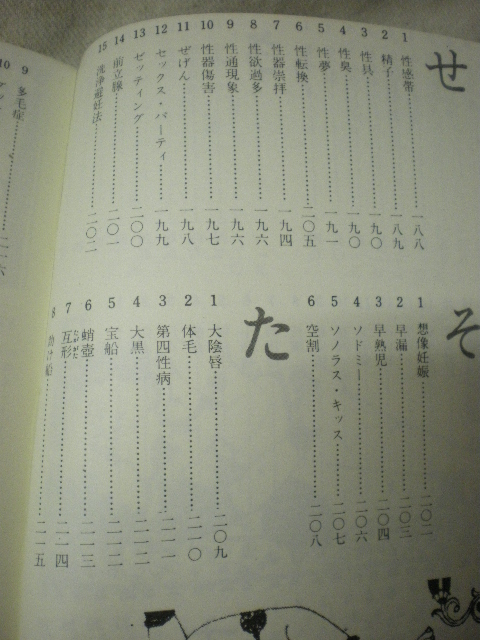 せ
1 性感帯 一八八
2 精子 一八九
3 性具 一九〇
4 性臭 一九〇
5 性夢 一九一
6 性転換 二〇五
7 性器崇拝 一九四
8 性欲過多 一九六
9 性通現象 一九六
10 性器傷害 一九七
11 ぜげん 一九八
12 セックス・パーティ 一九九
13 ゼッティング 二〇〇
14 前立腺 二〇一
15 洗浄避妊法 二〇二
そ
1 想像妊娠 二〇二
2 早漏 二〇三
3 早熟児 二〇四
4 ソドミー 二〇六
5 ソノラス・キッス 二〇七
6 空割 二〇八
た
1 大陰唇 二〇九
2 体毛 二一〇
3 第四性病 二一一
4 大黒 二一二
5 宝船 二一二
6 蛸壺 二一三
7 互形 二一四
8 助け船 二一五
9 多毛症 二一六
10